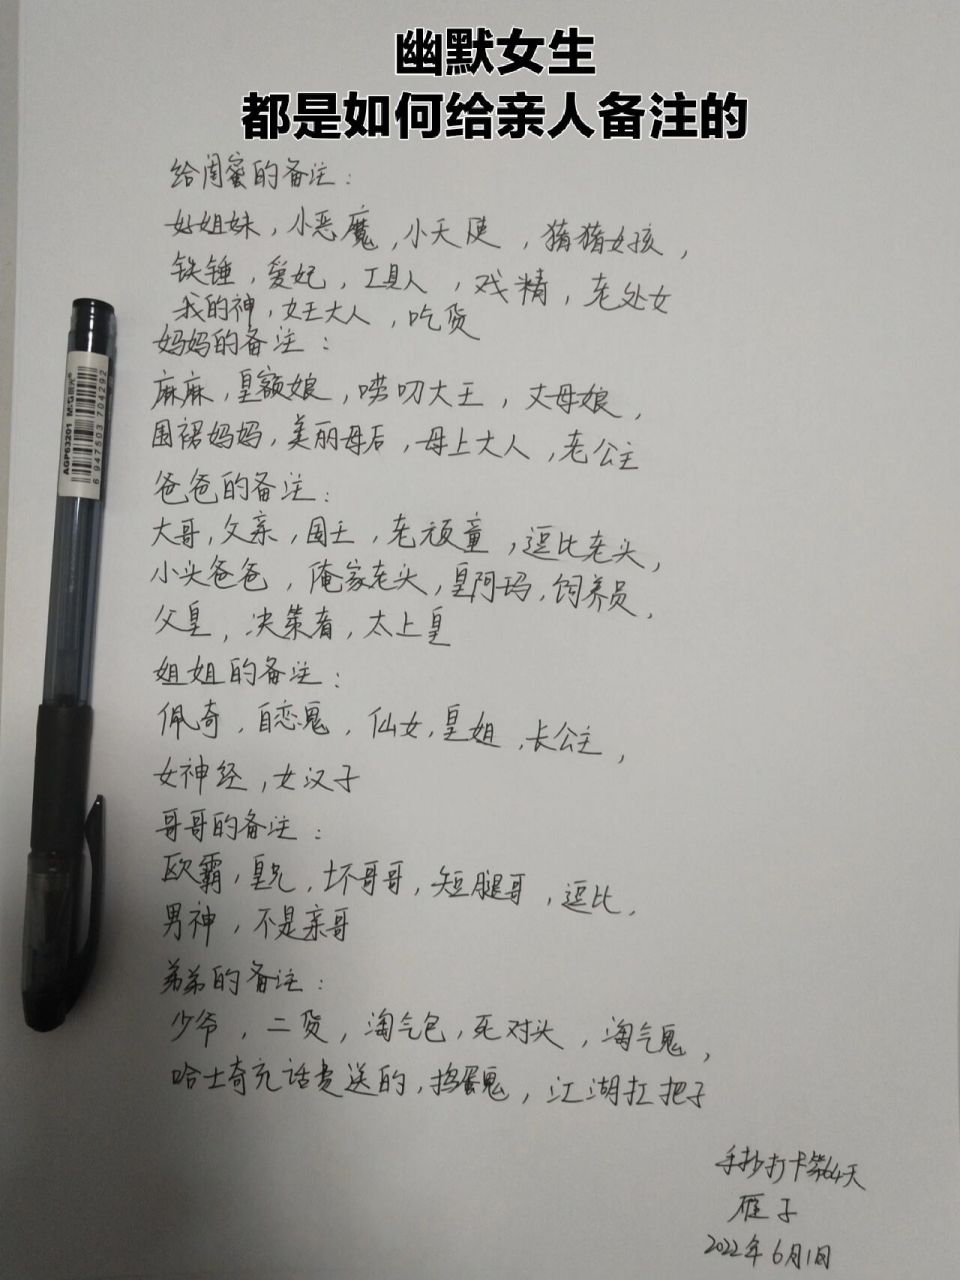 幽默女生
都是如何给亲人备注的
给闺蜜的备注：
好姐妹，小恶魔，小天使，猪猪女孩，
铁锤，爱妃，工具人，戏精，老处女
我的神，女王大人，吃货
妈妈的备注：
麻麻，皇额娘，唠叨大王，丈母娘，
围裙妈妈，美丽母后，母上大人，老公主
爸爸的备注：
大哥，父亲，国王，老顽童，逗比老头，
小头爸爸，俺家老头，皇阿玛，饲养员，
父皇，决策者，太上皇
姐姐的备注：
佩奇，自恋鬼，仙女，皇姐，长公主，
女神经，女汉子
哥哥的备注：
欧霸，皇兄，坏哥哥，短腿哥，逗比，
男神，不是亲哥
弟弟的备注：
少爷，二货，淘气包，死对头，淘气鬼，
哈士奇充话费送的，捣蛋鬼，江湖扛把子
手抄打卡第64天
雁子
2022年6月1日
AGP63201 M&G晨光®
6947503704292